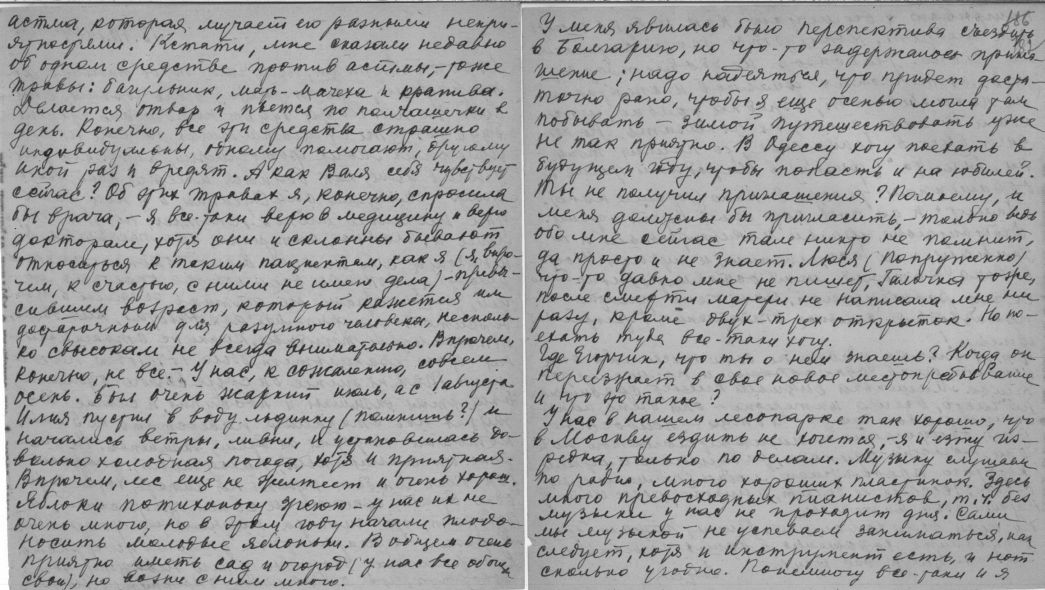 астма, которая мучает его разными непри-
ятностями. Кстати, мне сказали недавно
об одном средстве против астмы, – тоже
травы: багульник, мать-мачеха и крапива.
Делается отвар и пьется по полчашечки в
день. Конечно, все эти средства страшно
индивидульны, одному помогают, другому
иной раз и вредят. А как Валя себя чувствует
сейчас? Об этих травах я, конечно, спросила
бы врача, – я все-таки верю в медицину и верю
докторам, хотя они и склонны бывают
относиться к таким пациентам, как я (я, впро-
чем, к счастью, с ними не имею дела) – превы-
сившим возраст, который кажется им
достаточным для разумного человека, несколь-
ко свысока и не всегда внимательно. Впрочем,
конечно, не все. – У нас, к сожалению, совсем
осень. Был очень жаркий июль, а с 1 августа
Илия пустил в воду льдинку (помнишь?) и
начались ветры, ливни, и установилась до-
вольно холодная погода, хотя и приятная.
Впрочем, лес еще не желтеет и очень хорош.
Яблоки потихоньку зреют – у нас их не
очень много, но в этом году начали плодо-
носить молодые яблоньки. В общем очень
приятно иметь сад и огород (у нас все овощи
свои), но возни с ним много.
186
У меня явилась было перспектива съездить
в Болгарию, но что-то задержалось пригла
шение; надо надеяться, что придет доста-
точно рано, чтобы я еще осенью могла там
побывать – зимой путешествовать уже
не так приятно. В Одессу хочу поехать в
будущем году, чтобы попасть и на юбилей.
Ты не получил приглашения? По-моему, и
меня должны бы пригласить, – только ведь
обо мне сейчас там никто не помнит,
да просто и не знает. Люся (Попруженко)
что-то давно мне не пишет, Галочка тоже,
после смерти матери не написала мне ни
разу, кроме двух-трех открыток. Но по-
ехать туда все-таки хочу.
Где Егорчик, что ты о нем знаешь? Когда он
переезжает в свое новое местопребывание
и что это такое?
У нас в нашем лесопарке так хорошо, что
в Москву ездить не хочется, – я и езжу из-
редка, только по делам. Музыку слушаем
по радио, много хороших пластинок. Здесь
много превосходных пианистов, т.ч. без
музыки у нас не проходит дня. Сами
мы музыкой не успеваем заниматься, как
следует, хотя и инструмент есть, и нот
сколько угодно. Понемногу все-таки и я